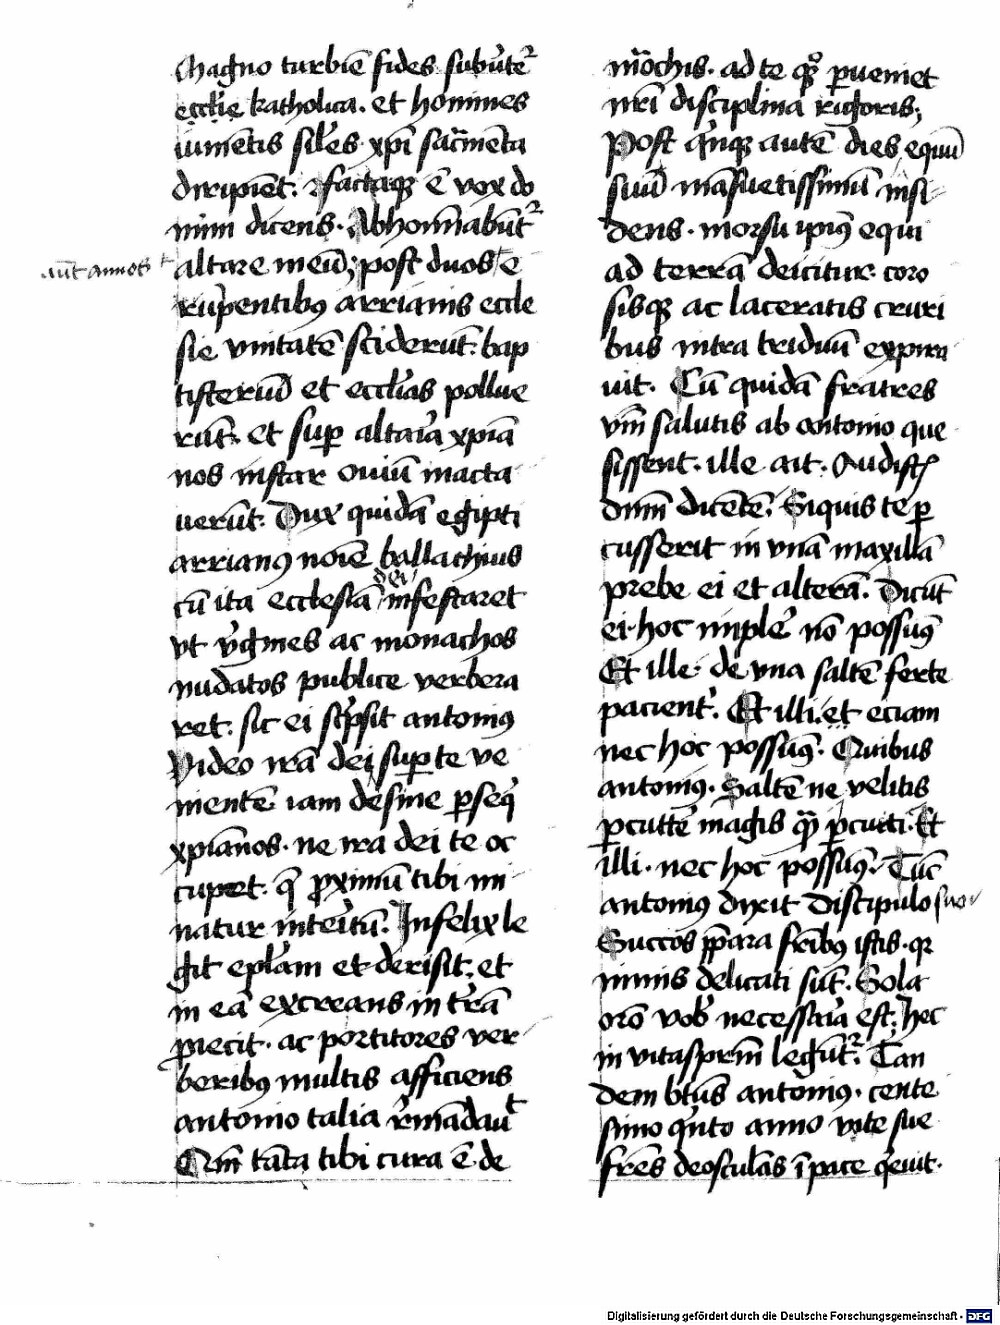 Magno turbīe fides subūteᷣ
eccl̄ie katholica. et homines
iumētis siłes xp̄i sac̄menta
diripiēt. factaq; ē vox do
mini dicens. Abhominabūtᷣ
.aūt annos
altare meū; post duos e
rūpentibꝫ arrianis eccle
sie vnitatē sciderūt. bap
tisteriū et ecclīas pollue
rūt. et suꝑ altaīa xp̄ia
nos instar ouiū macta
uerūt. Dux quidā egipti
arrianꝰ noīe ballachius
cū ita ecclesiā dei infestaret
vt v̓gines ac monachos
nudatos publice verbera
ret. sic ei sc̓psit antoniꝰ
Video irā dei suꝑ te ve
nientē iam desine ꝑseq̓
xpīanos. ne ira dei te oc
cupet. q̄ ꝓximū tibi mi
natur inteītū. Infelix le
git epl̄am et derisit. et
in eā excreans in tr̄ā
ꝓiecit. ac portitores ver
beribꝰ multis afficiens
antonio talia r̄mādauᷓt
Qm̄ tāta tibi cura ē de
mōchis. ad te qͦꝫ ꝑueniet
nr̄i disciplina rigoris;
Post q̓nqꝫ autē dies equū
suū māsuetissimū insi
dens. morsu ip̄iꝰ equi
ad terrā deicitur. coro
sisqꝫ ac laceratis cruri
bus intra triduū expira
uit. Cū quidā fratres
vm̄ salutis ab antonio que
sissent. ille ait. Audistꝭ
dnm̄ dicētē. Siquis te ꝑ
cusserit in vnā maxillā
prebe ei et alterā. Dicūt
ei. hoc implere nō possūꝰ
Et ille. de vna saltē ferte
pacient̓. Et illi. et eciam
nec hoc possūꝰ. Quibus
antoniꝰ. Saltē ne velitis
ꝑcuttē magis qꝫ̄ ꝑcuti. Et
illi. nec hoc possūꝰ. Tūc
antoniꝰ dixit discipulo suo
Succos p̄para fr̄ibꝰ istis. qꝛ
nimis delicati sūt. Sola
orō vob̓ necessaīa est. Hec
in vitaspr̄m legūtᷣ. Tan
dem btūs antoniꝰ. cente
simo q̓nto anno vite sue
fr̄es deosculās ī pace q̓euit.
Digitalisierung gefördert durch die Deutsche Forschungsgemeinschaft - DFG